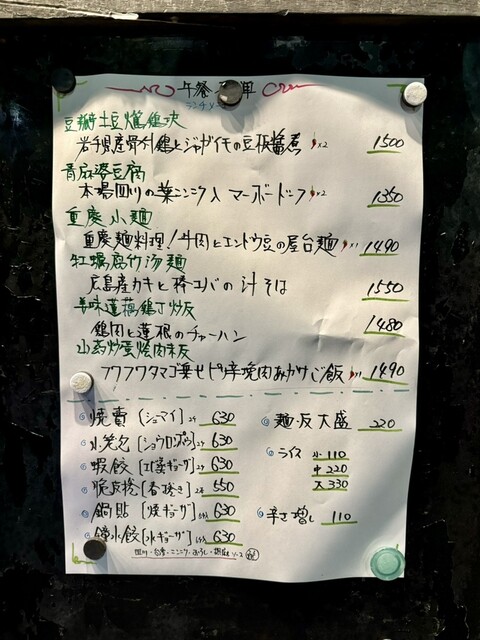 午餐菜単
ランチメニュー
豆瓣土豆燉鶏块
岩手県産骨付鶏とジャガイモの豆板醤煮 ×2 1500
青麻婆豆腐
本場四川の葉ニンニク入マーボードーフ ×2 1350
重慶小麺
重慶麺料理!牛肉とエンドウ豆の屋台麺 ×1 1490
紅蠣腐竹湯麺
広島産カキと棒ユバの汁そば 1550
美味蓮藕鶏丁炒飯
鶏肉と蓮根のチャーハン 1480
山药炒蛋焼肉末飯
フワフワタマゴ乗せピリ辛挽肉あんかけご飯 1490
焼賣[シュウマイ]2ケ 630
小笼包[ショウロンポウ]2ケ 630
蝦餃[エビ蒸ギョーザ]2ケ 630
脆皮捲[春捲き]2本 550
鍋貼[焼ギョーザ]5ケ入 630
鐘水餃[水ギョーザ]5ケ入 630
麺・飯大盛 220
ライス 小 110
中 220
大 330
辛さ増し 110